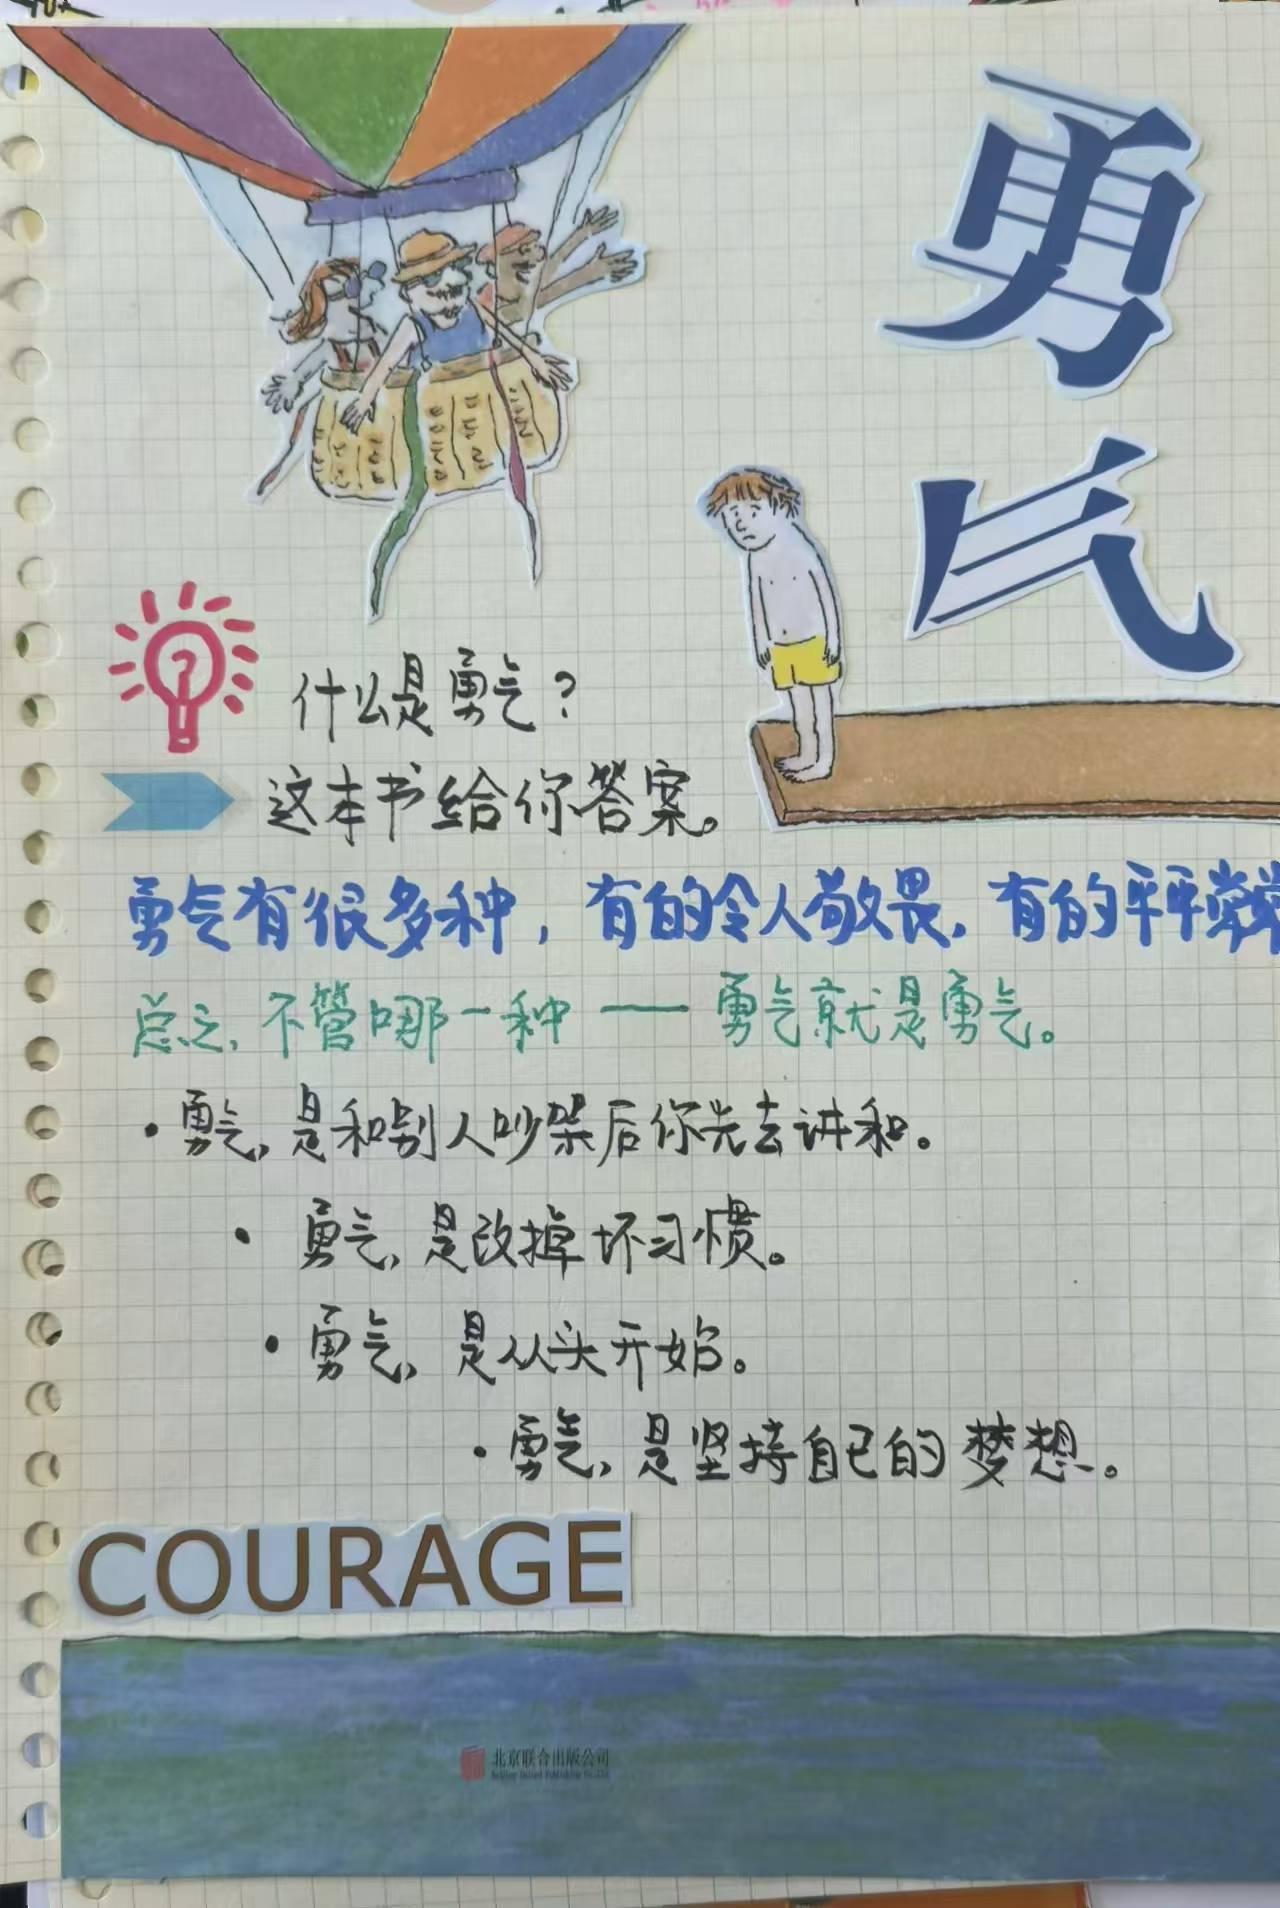 勇气
什么是勇气？
这本书给你答案。
勇气有很多种，有的令人敬畏，有的平平常常
总之，不管哪一种——勇气就是勇气。
·勇气，是和别人吵架后你先去讲和。
·勇气，是改掉坏习惯。
·勇气，是从头开始。
·勇气，是坚持自己的梦想。
COURAGE
北京联合出版公司
Beijing United Publishing Co.,Ltd.